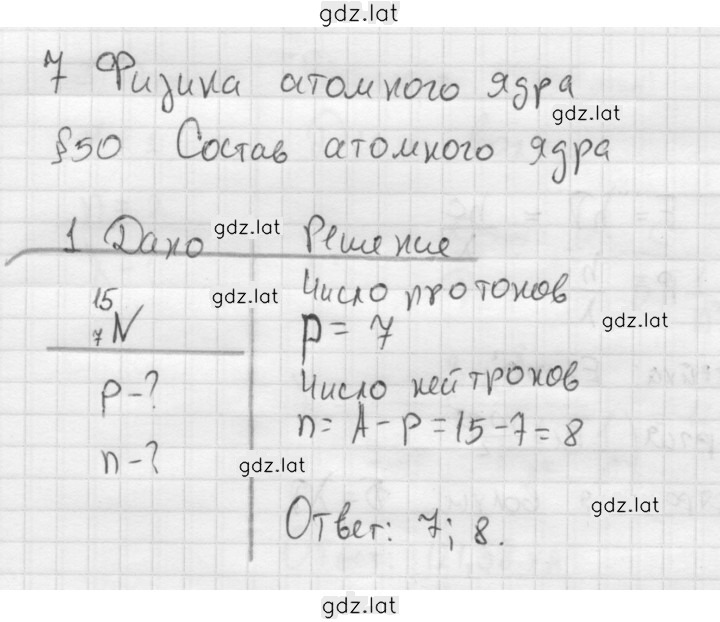 gdz.lat
7 Физика атомного ядра
gdz.lat
§50 Состав атомного ядра
1 Дано gdz.lat Решение
15 gdz.lat Число протонов
7 N p = 7 gdz.lat
p - ? Число нейтронов
n = A - p = 15 - 7 = 8
n - ? gdz.lat
gdz.lat
Ответ: 7; 8.
gdz.lat